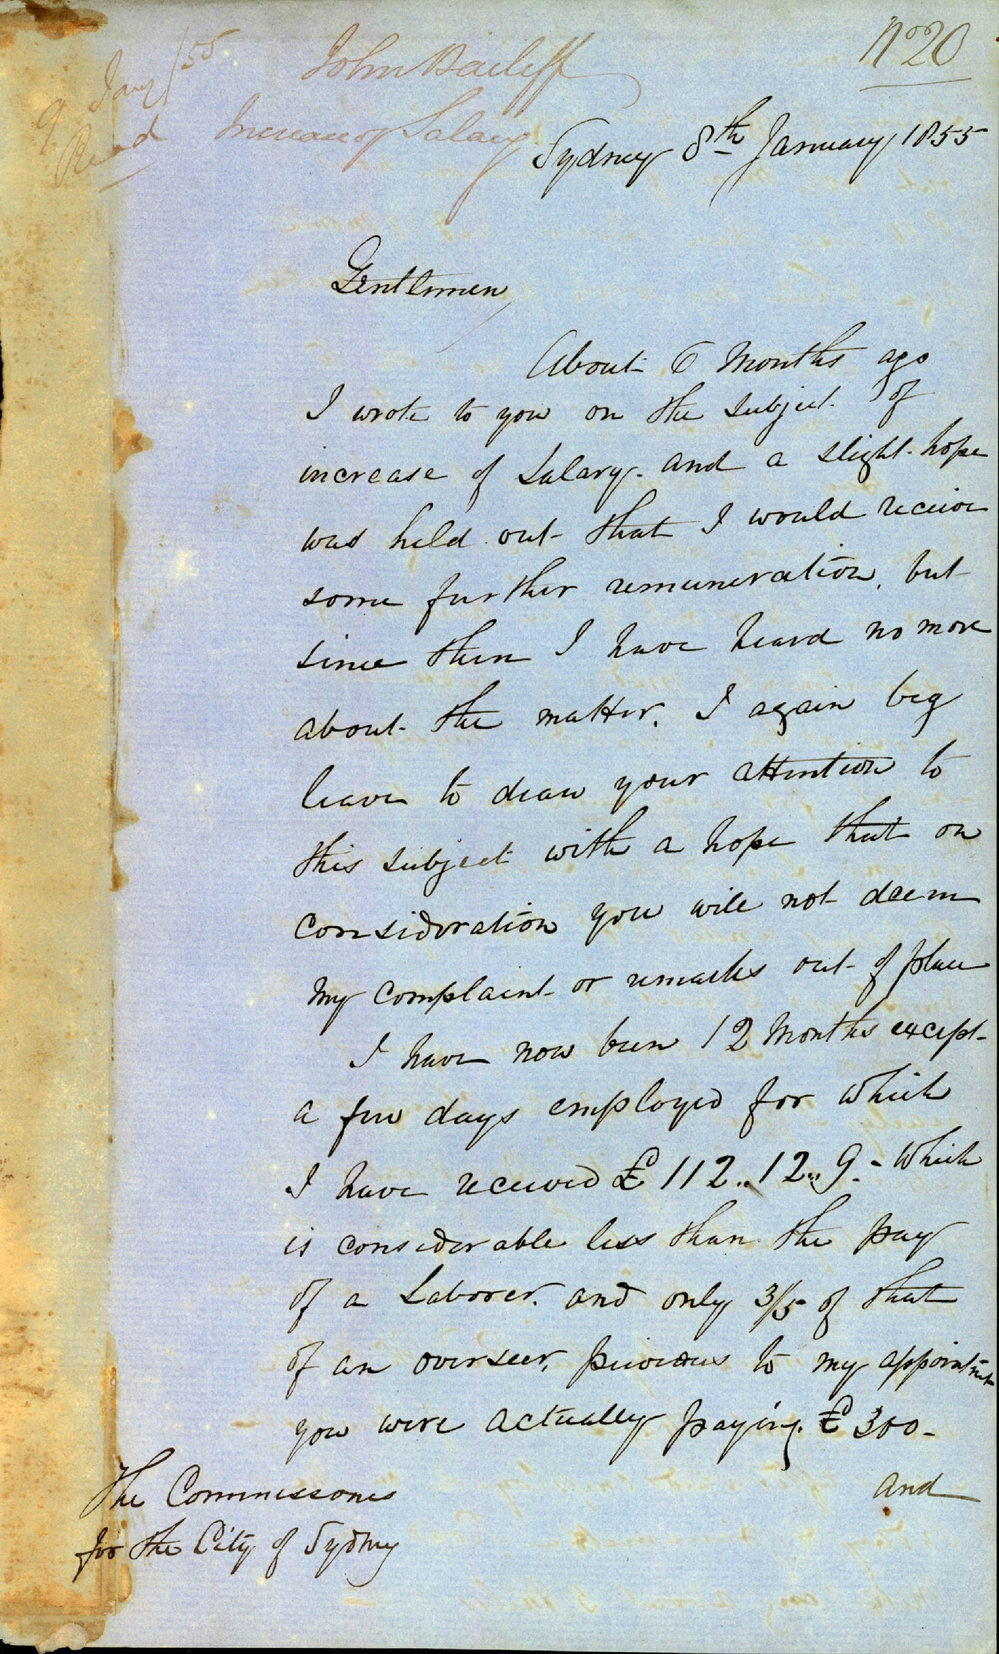 No 20
9 Jany /55
Read
John Bailiff
Increase of Salary
Sydney 8th January 1855
Gentlemen
About 6 Months ago
I wrote to you on the subject of
increase of Salary. and a slight hope
was held out that I would receive
some further remuneration, but
since then I have heard no more
about the matter. I again beg
leave to draw your attention to
this subject with a hope that on
consideration you will not deem
my complaint or remarks out of place
I have now been 12 Months except
a few days employed for which
I have received £112..12..9. - Which
is considerable less than the pay
of a Laborer. and only 3/5 of that
of an overseer, previous to my appointment
you were actually paying. £300 -
and
The Commissones
for the City of Sydney